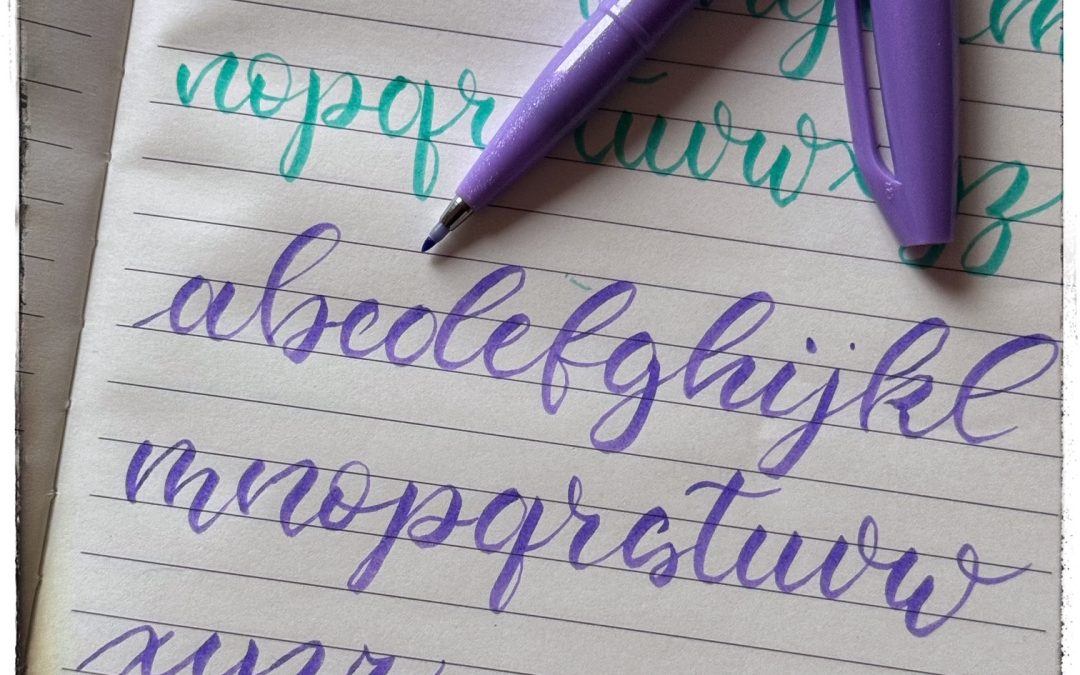 nopqr tuvwx z
abcdefghijkl
mnopqrstuvw